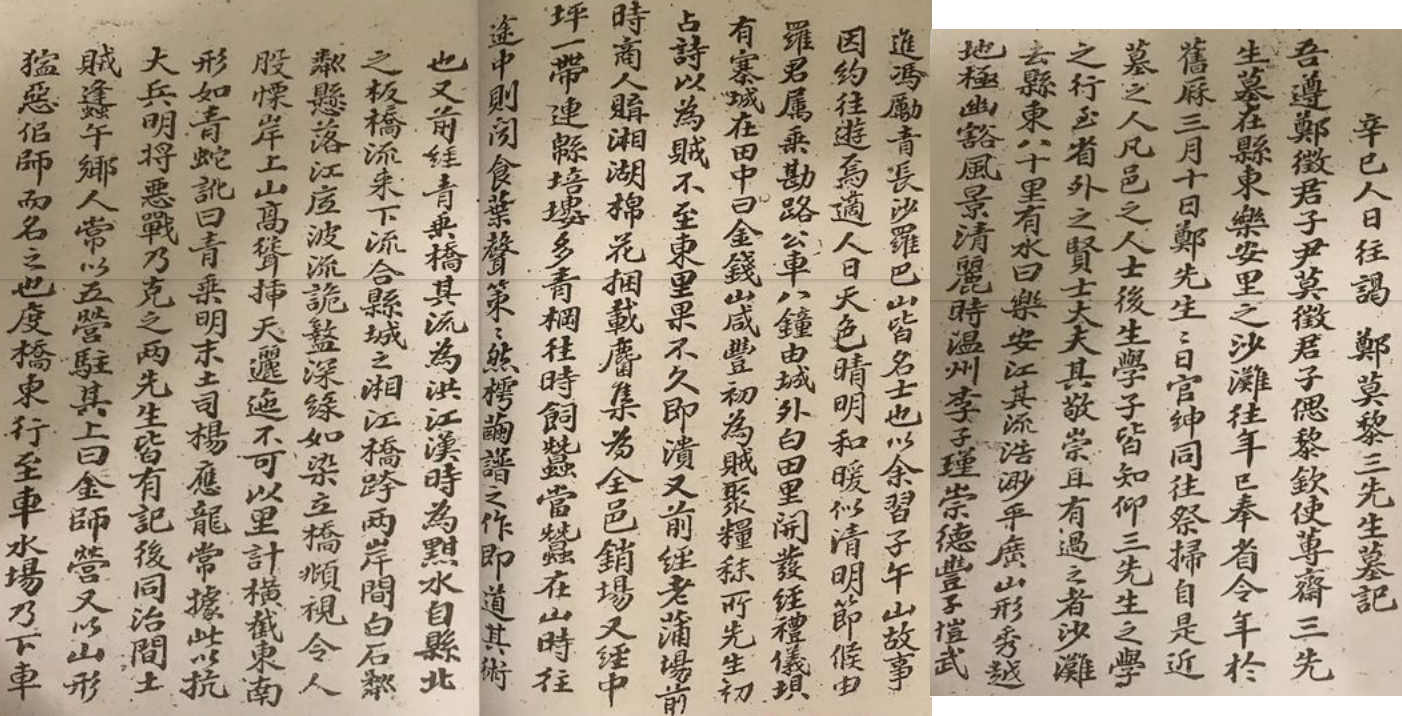 辛巳人日往謁 鄭莫黎三先生墓記
吾遵鄭徵君子尹莫徵君子偲黎欽使蓴齋三先
生墓在縣東樂安里之沙灘往年已奉省令年於
舊厤三月十日鄭先生〻日官紳同往祭掃自是近
墓之人凡邑之人士後生學子皆知仰三先生之學
之行至省外之賢士大夫其敬崇且有過之者沙灘
去縣東八十里有水曰樂安江其流浩渺平廣山形秀越
地極幽豁風景清麗時温州李子瑾崇德豐子愷武
進馮勵青長沙羅巴山皆名士也以余習子午山故事
因約往遊焉適人日天色晴明和暖似清明節候由
羅君属乗勘路公車八鐘由城外白田里開發經禮儀垻
有寨城在田中曰金錢山咸豐初為賊聚糧秣所先生初
占詩以為賊不至東里果不久即潰又前經老蒲場前
時商人販湘湖棉花捆載麕集為全邑銷場又經中
坪一帶連緜培塿多青棡往時飼蠶當蠶在山時往
途中則闻食葉聲策〻然樗繭譜之作即道其術
也又前經青乗橋其流為洪江漢時為黚水自縣北
之板橋流来下流合縣城之湘江橋跨两岸間白石粼
粼懸落江底波流詭盭深綠如染立橋頫視令人
股慄岸上山高聳揷天邐迤不可以里計橫截東南
形如青蛇訛曰青乗明末土司楊應龍常據此以抗
大兵明将惡戰乃克之两先生皆有記後同治間土
賊蠭午鄉人常以五營駐其上曰金師營又以山形
猛惡佀師而名之也度橋東行至車水場乃下車